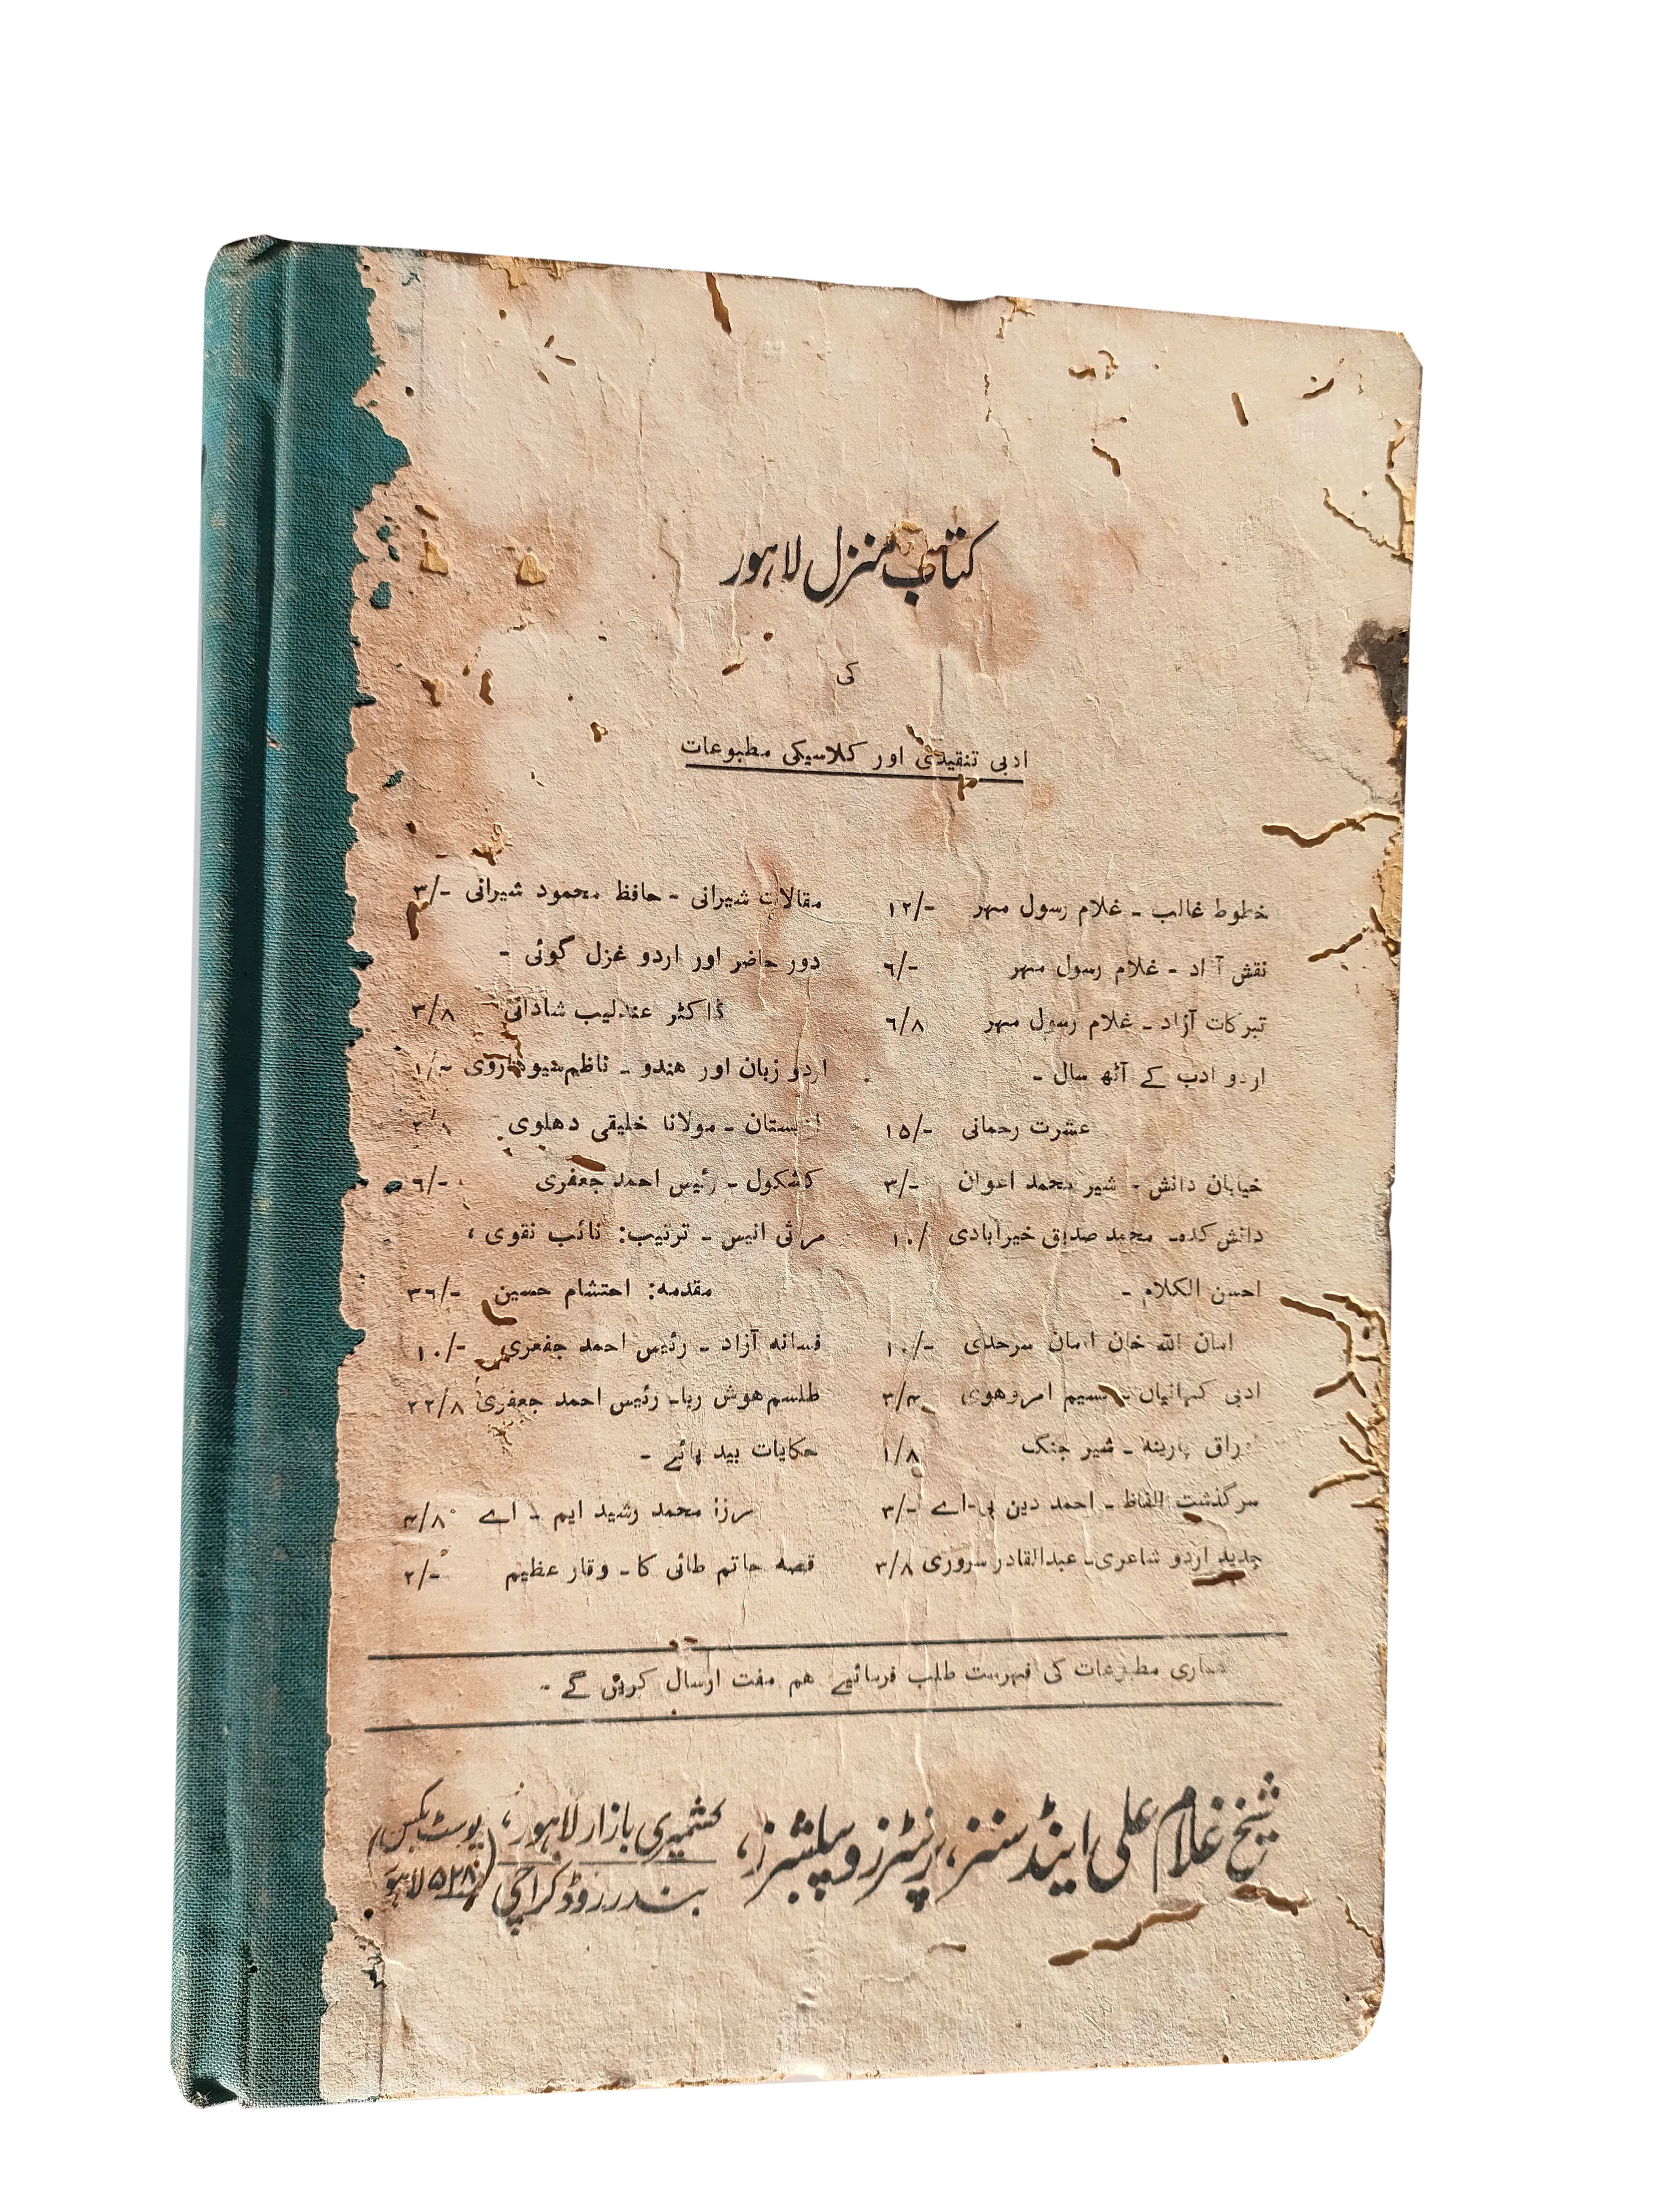 کتاب منزل لاہور
کی
ادبی تنقیدی اور کلاسیکی مطبوعات
خطوط غالب ـ غلام رسول مہر ١٢/-
نقش آزاد ـ غلام رسول مہر ٦/-
تبرکات آزاد ـ غلام رسول مہر ٦/٨
اردو ادب کے آٹھ سال ـ
عشرت رحمانی ١٥/-
خیابان دانش ـ شیر محمد اعوان ٣/-
دانش کدہ ـ محمد صدیق خیرآبادی ١٠/
احسن الکلام ـ
امان اللہ خان امان سرحدی ١٠/-
ادبی کہانیاں ـ نسیم امروھوی ٣/٤
اوراق پارینہ ـ شیر جنگ ١/٨
سرگذشت الفاظ ـ احمد دین بی-اے ٣/-
جدید اردو شاعری ـ عبدالقادر سروری ٣/٨
مقالات شیرانی ـ حافظ محمود شیرانی ٣/-
دور حاضر اور اردو غزل گوئی ـ
ڈاکٹر عندلیب شادانی ٣/٨
اردو زبان اور ھندو ـ ناظم سیوھاروی ١/-
ـ مولانا خلیقی دھلوی
کشکول ـ رئیس احمد جعفری ٦/-
مرثی انیس ـ ترتیب: نائب نقوی ،
مقدمہ: احتشام حسین ٣٦/-
فسانہ آزاد ـ رئیس احمد جعفری ١٠/-
طلسم ھوش ربا ـ رئیس احمد جعفری ٢٢/٨
حکایات بید پائے ـ
مرزا محمد رشید ایم ـ اے ٤/٨
قصہ حاتم طائی کا ـ وقار عظیم ٢/-
ھماری مطبوعات کی فہرست طلب فرمائیے ھم مفت ارسال کریں گے ـ
شیخ غلام علی اینڈ سنز، پرنٹرز و پبلشرز، کشمیری بازار لاہور، (پوسٹ بکس
بندر روڈ کراچی ٥٢٨ لاہور)